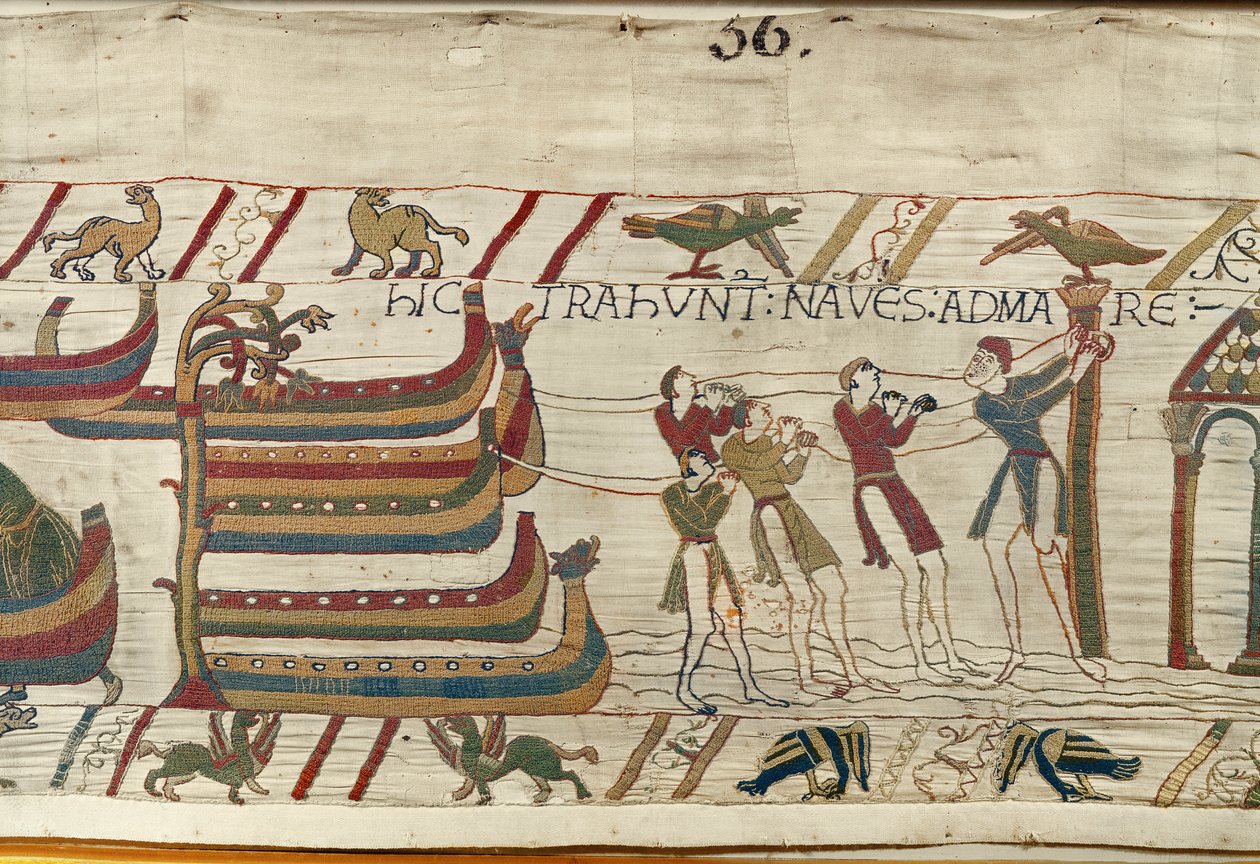 36.
hIC TRAhVNT : NAVES : AD MARE : –